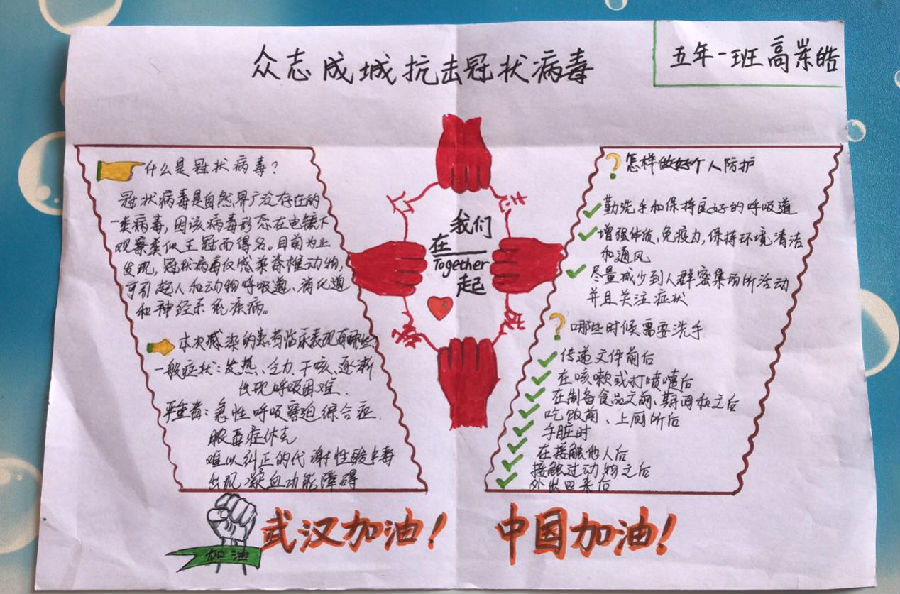 众志成城抗击冠状病毒
五年一班高崇皓
什么是冠状病毒？
冠状病毒是自然界广泛存在的
一类病毒，因该病毒形态在电镜下
观察类似王冠而得名。目前为止
发现，冠状病毒仅感染脊椎动物，
可引起人和动物呼吸道、消化道
和神经系统疾病。
本次感染的患者临床表现有哪些
一般症状：发热、乏力、干咳、逐渐
出现呼吸困难
严重者：急性呼吸窘迫综合症
脓毒症休克
难以纠正的代谢性酸中毒
出现凝血功能障碍
我们
在
Together
起
怎样做好个人防护
勤洗手和保持良好的呼吸道
增强体质，免疫力，保持环境清洁
和通风
尽量减少到人群密集场所活动
并且关注症状
？哪些时候需要洗手
传递文件前后
在咳嗽或打喷嚏后
在制备食品之前、期间和之后
吃饭前、上厕所后
手脏时
在接触他人后
接触过动物之后
外出回来后
加油
武汉加油！
中国加油！